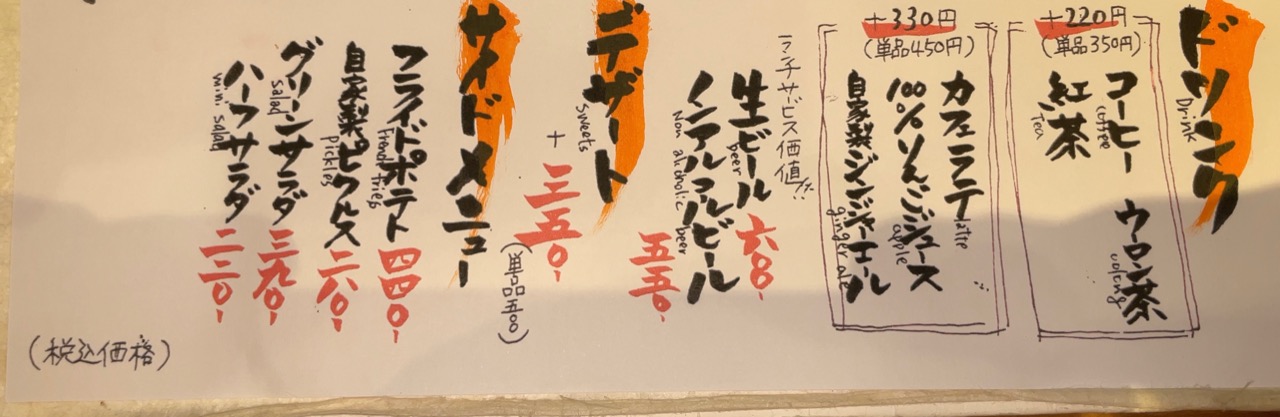 ドリンク
Drink
+220円
(単品350円)
コーヒー
coffee
ウーロン茶
oolong
紅茶
Tea
+330円
(単品450円)
カフェラテ
latte
100%りんごジュース
apple
自家製ジンジャーエール
ginger ale
ランチサービス価格!!
生ビール 六八〇-
beer
ノンアルコールビール 五五〇-
Non alcholic beer
デザート
sweets
+三五〇-
(単品五〇〇)
サイドメニュー
フライドポテト 四四〇-
French fries
自家製ピクルス 二六〇-
Pickles
グリーンサラダ 三九〇-
salad
ハーフサラダ 二二〇-
mini salad
(税込価格)